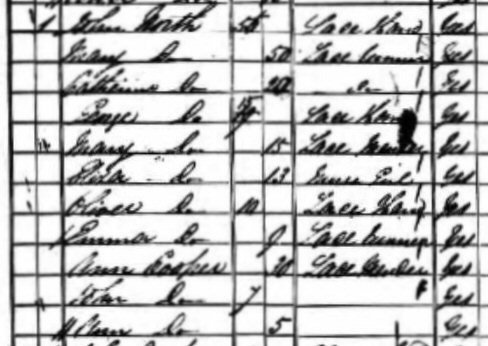 1 John North 55 Lace Hand Yes
Mary Do 50 Lace Runner Yes
Catherine Do 20 Do Yes
George Do Lace Hand Yes
Mary Do 15 Lace Mender Yes
Eliza Do 13 Nurse Girl Yes
Oliver Do 10 Lace Hand Yes
Emma Do 9 Lace Runner Yes
Ann Cooper 30 Lace Mender Yes
John Do 7 Yes
Ann Do 5 Yes